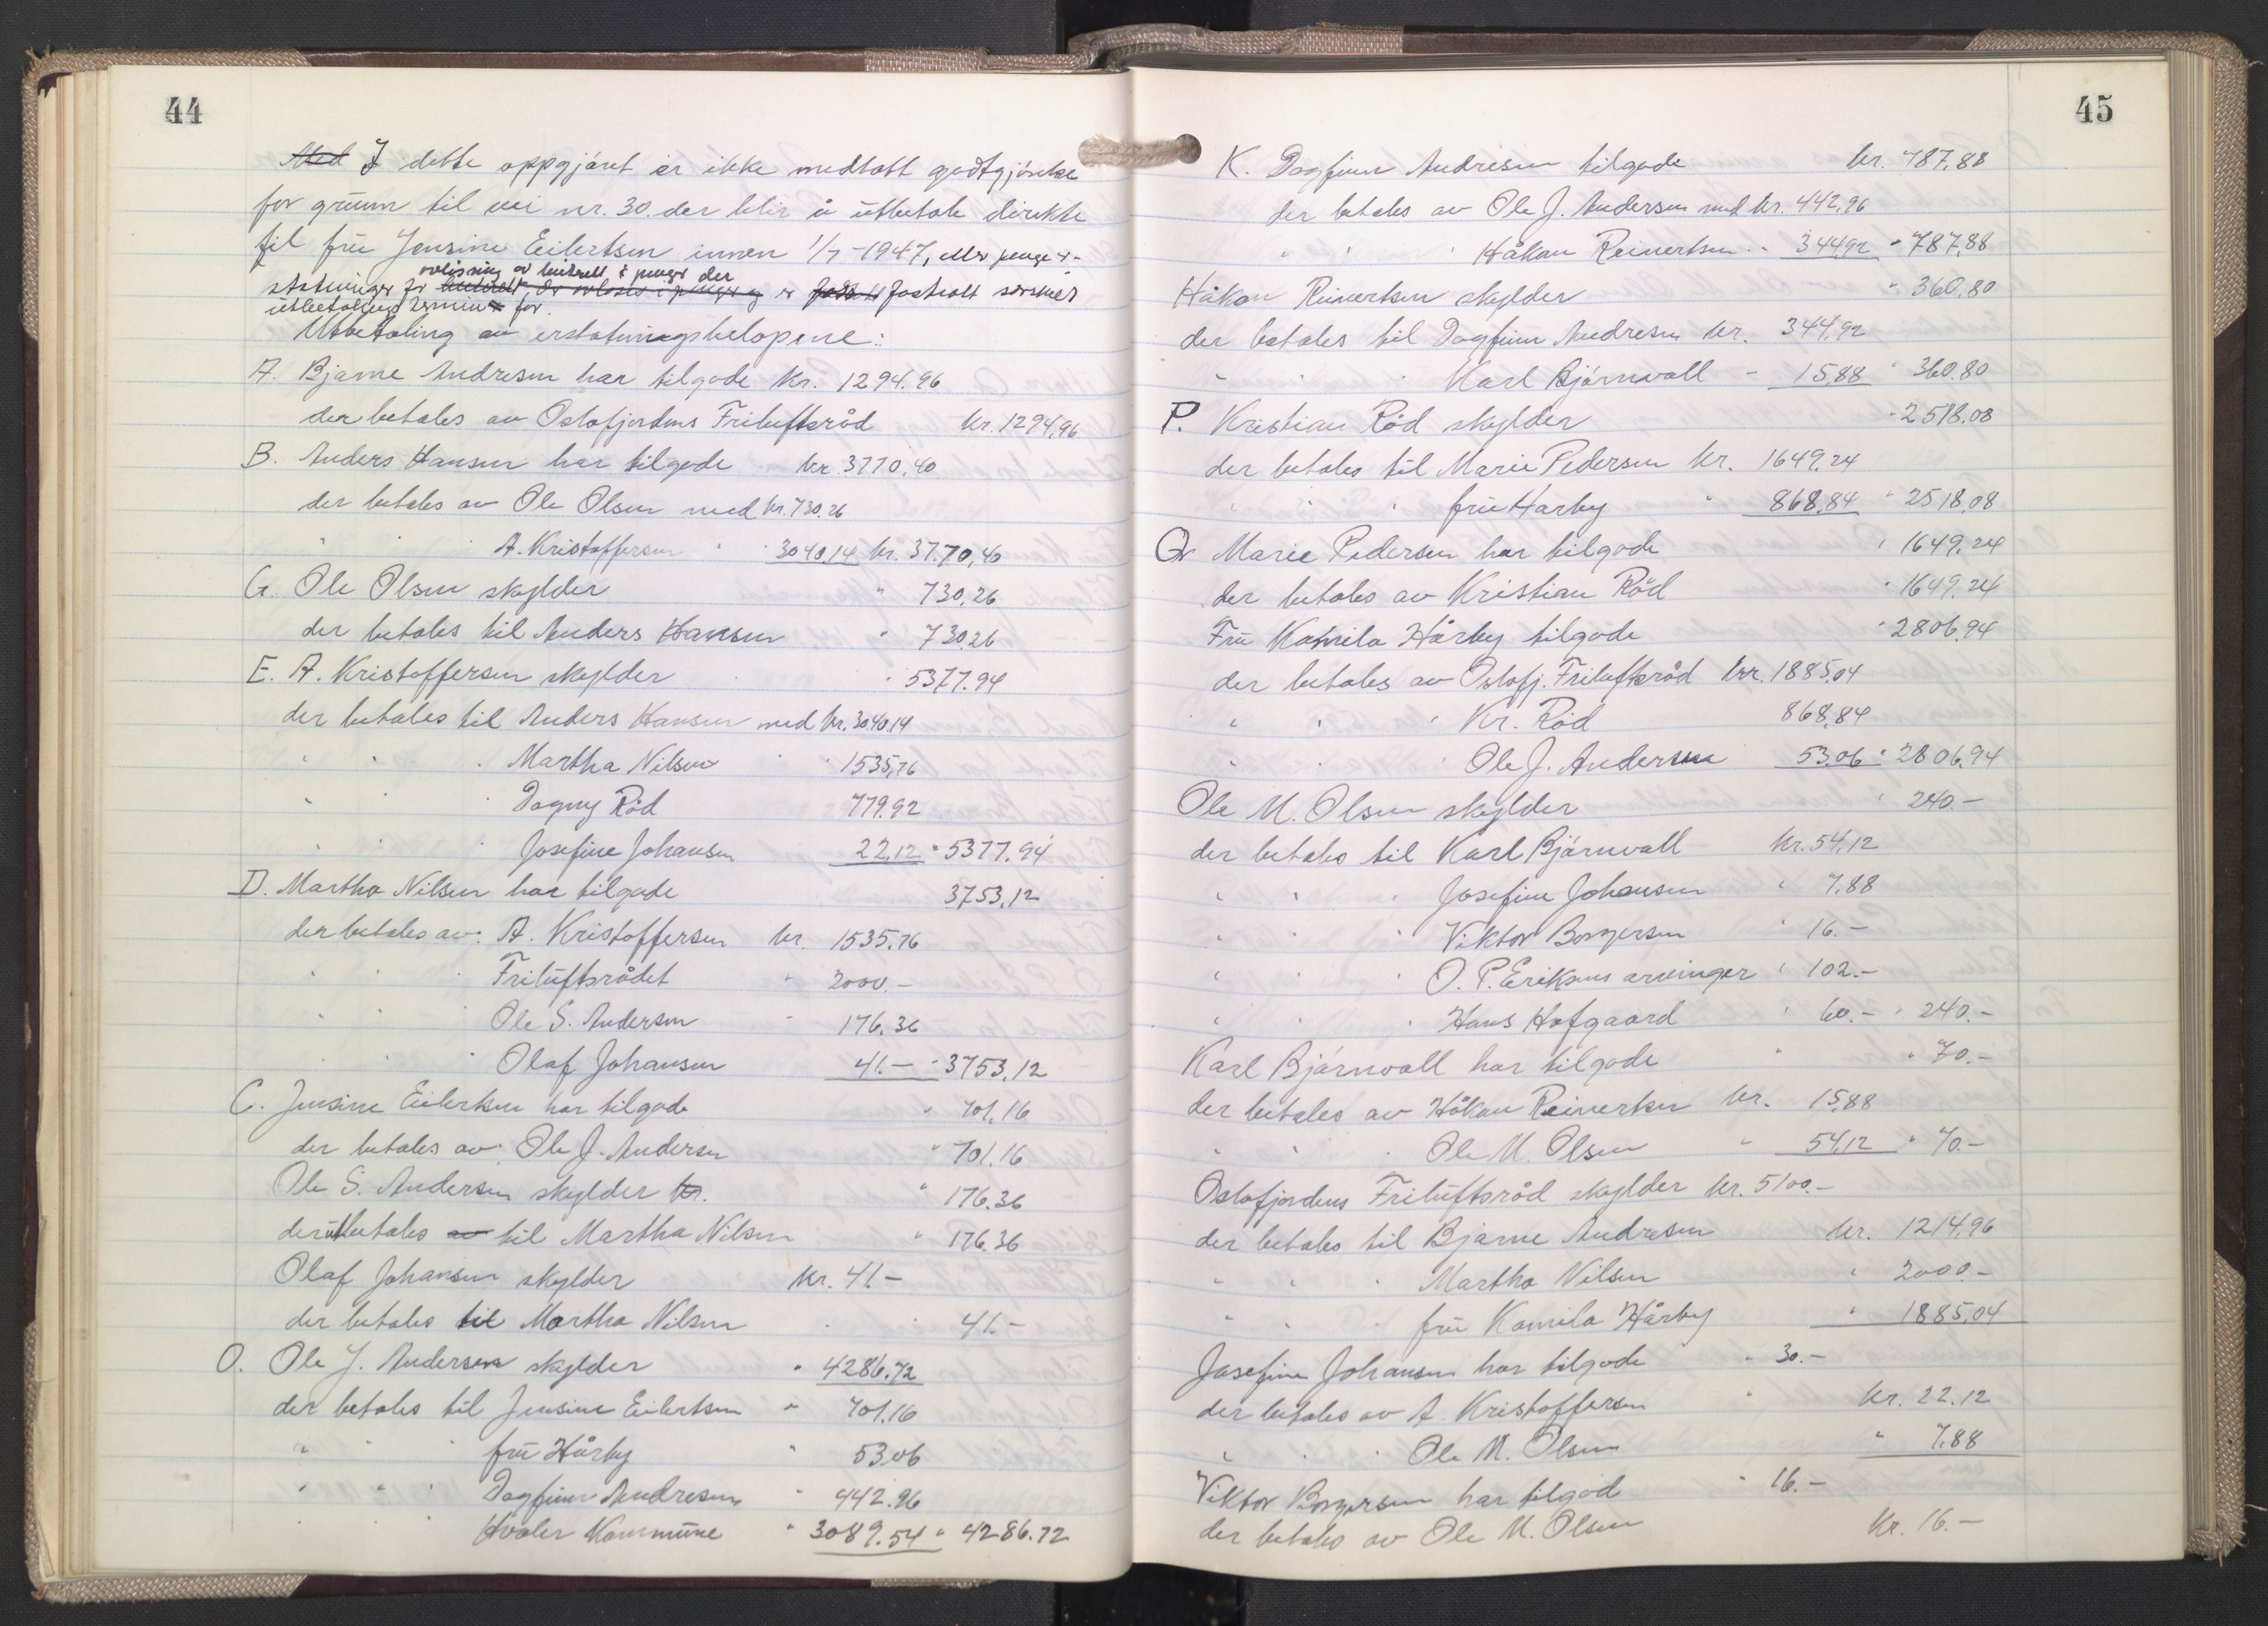 44
Med I dette oppgjøret er ikke medtatt godtgjörelse
for grunn til vei nr. 30. der blir å utbetale direkte
til frü Jensine Eilertsen innen 1/7-1947,
avlösning av beiterett i penger der
statninger for er fastsatt særskilt
utbetalings termin for.
Utbetaling av erstatningsbelöpene:
A. Bjarne Andresen har tilgode kr. 1294.96
der betales av Oslofjordens Friluftsråd kr. 1294,96
B. Anders Hansen har tilgode kr. 3770,40
der betales av Ole Olsen med kr. 730.26
" " A. Kristoffersen " " 3040,14 kr. 3770,40
G. Ole Olsen skylder " 730,26
der betales til Anders Hansen " 730,26
E. A. Kristoffersen skylder " 5377.94
der betales til Anders Hansen med kr. 3040.14
" " " Martha Nilsen " " 1535,76
" " " Dagny Röd 779.92
" " " Josefine Johansen 22,12 " 5377.94
D. Martha Nilsen har tilgode 3753,12
der betales av: A. Kristoffersen kr. 1535.76
" " " Friluftsrådet " 2000.-
" " " Ole S. Andersen " 176.36
" " " Olaf Johansen 41.- " 3753,12
C. Jensine Eilertsen har tilgode " 701,16
der betales av: Ole J. Andersen " 701.16
Ole S. Andersen skylder kr. " 176.36
der utbetales av til Martha Nilsen " 176.36
Olaf Johansen skylder kr. 41.-
der betales til Martha Nilsen " " 41.-
O. Ole J. Andersen skylder " 4286.72
der betales til Jensine Eilertsen " 701.16
" " " frü Hårby " 53,06
" " " Dagfinn Andresen " 442.96
" " " Hvaler Kommüne " 3089.54 " 4286.72
45
K. Dagfinn Andresen tilgode kr. 787,88
der betales av Ole J. Andersen med kr. 442,96
" " " Håkon Reinertsen " " 344,92 " 787,88
Håkon Reinertsen skylder " 360,80
der betales til Dagfinn Andresen kr. 344,92
" " " Karl Björnvall " 15,88 " 360,80
P. Kristian Röd skylder " 2518.08
der betales til Marie Pedersen kr. 1649,24
" " " frü Harby " 868,84 " 2518,08
Q. Marie Pedersen har tilgode " 1649,24
der betales av Kristian Röd " 1649,24
Frü Kamila Hårby tilgode " 2806,94
der betales av Oslofj. Friluftsråd kr. 1885,04
" " " Kr. Röd 868,84
" " " Ole J. Andersen 53,06 " 2806,94
Ole M. Olsen skylder " 240.-
der betales til Karl Björnvall kr. 54,12
" " " Josefine Johansen " 7,88
" " " Viktor Borgersen " 16.-
" " " O. P. Eriksens arvinger " 102.-
" " " Hans Hofgaard " 60.- " 240.-
Karl Björnvall har tilgode " " 70.-
der betales av Håkon Reinertsen kr. 15,88
" " " Ole M. Olsen " 54,12 " 70.-
Oslofjordens Friluftsråd skylder kr. 5100.-
der betales til Bjarne Andresen kr. 1214,96
" " " Martha Nilsen " 2000.-
" " " frü Kamila Hårby " 1885,04
Josefine Johansen har tilgode " 30.-
der betales av A. Kristoffersen " kr. 22.12
" " " Ole M. Olsen " 7,88
Viktor Borgersen har tilgode " 16.-
der betales av Ole M. Olsen kr. 16.-